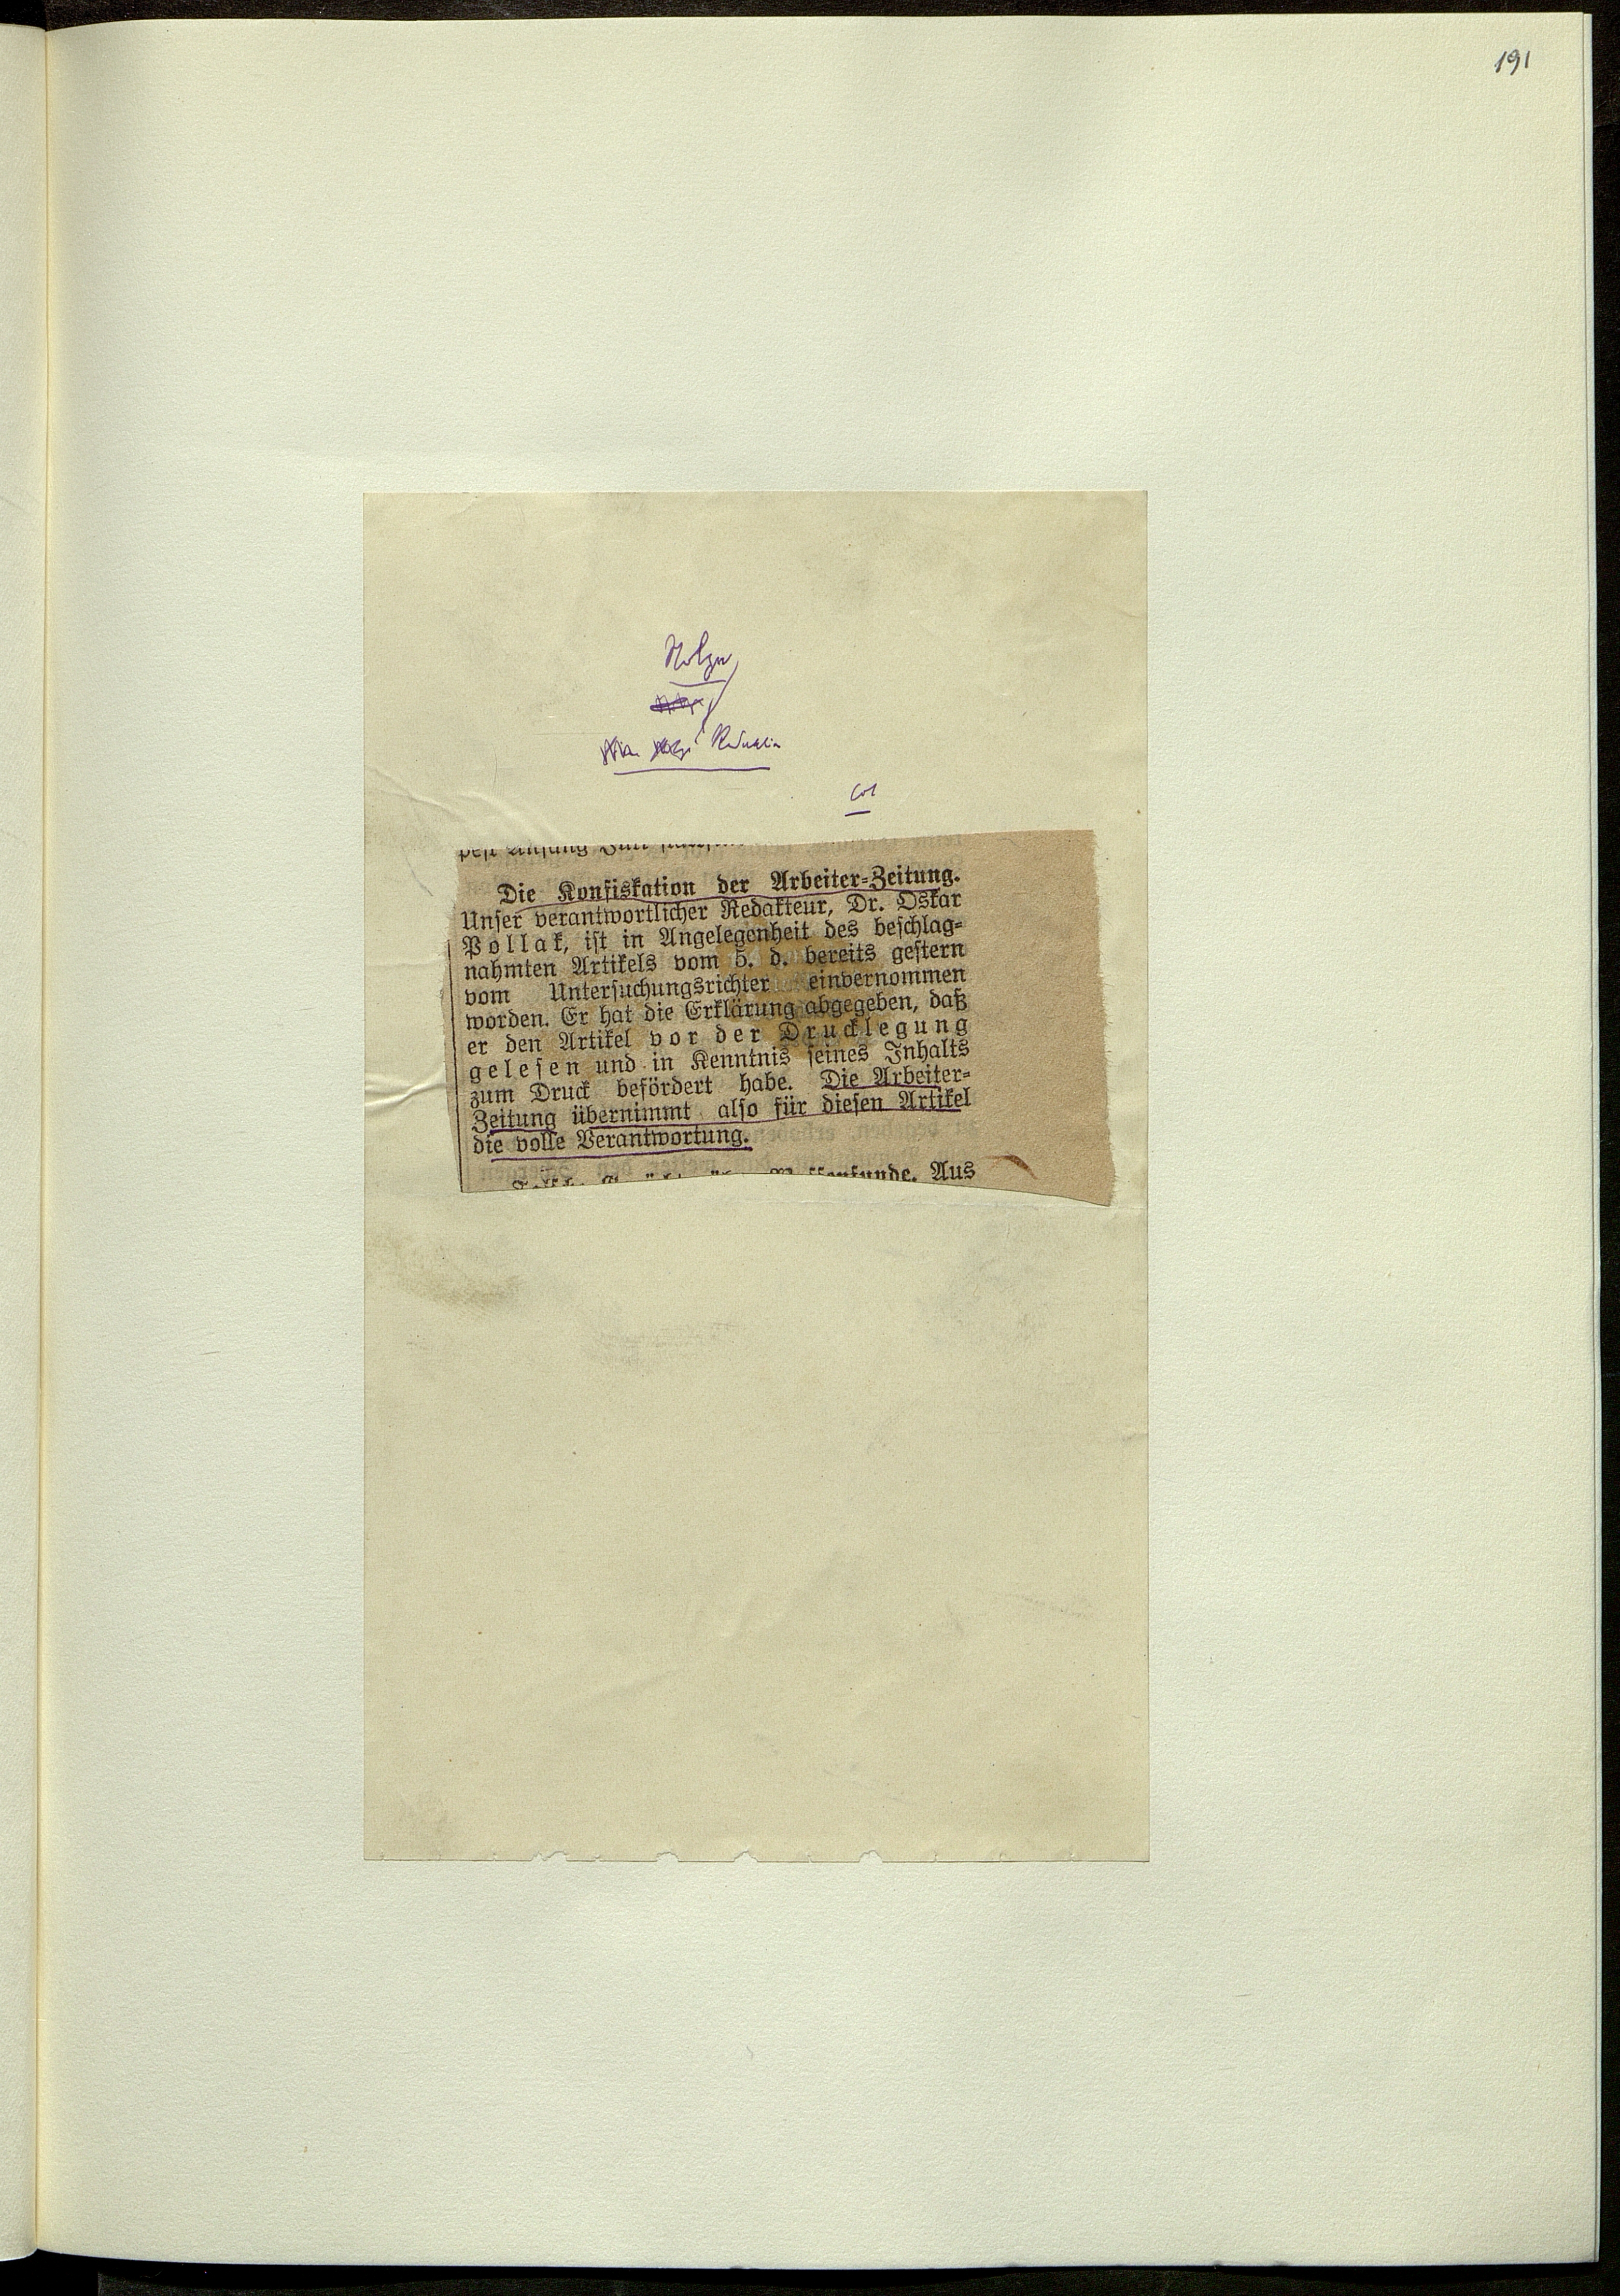 191
Die Konfiskation der Arbeiter-Zeitung.
Unser verantwortlicher Redakteur, Dr. Oskar
Pollak, ist in Angelegenheit des beschlag-
nahmten Artikels vom 5. d. bereits gestern
vom Untersuchungsrichter einvernommen
worden. Er hat die Erklärung abgegeben, daß
er den Artikel vor der Drucklegung
gelesen und in Kenntnis seines Inhalts
zum Druck befördert habe. Die Arbeiter-
Zeitung übernimmt also für diesen Artikel
die volle Verantwortung.
Aus